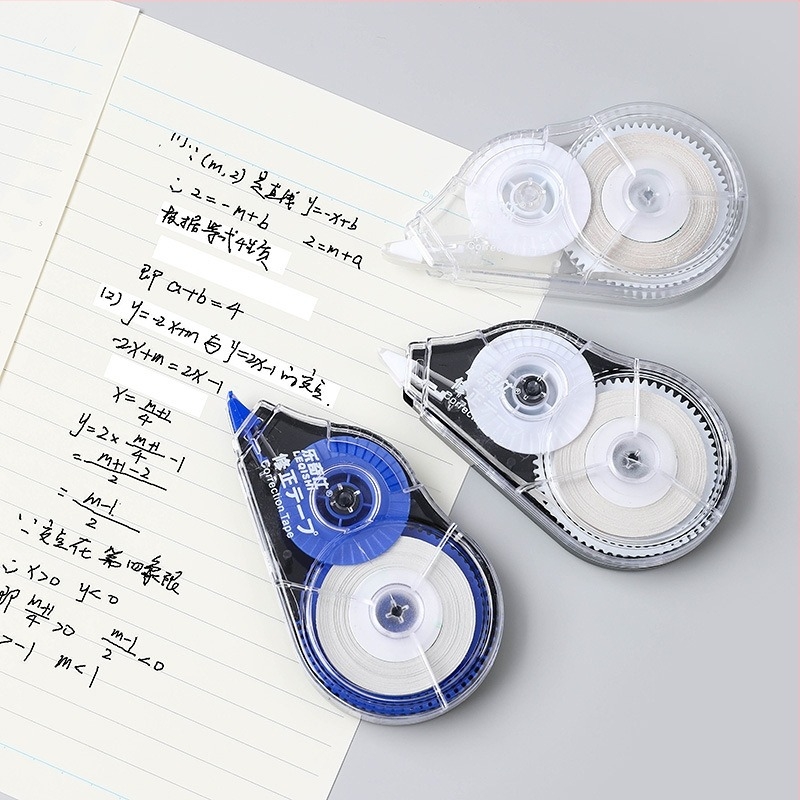 ∵(m,2)是直线 y=-x+b
∴2=-m+b 2=m+a
根据等式性质
即 a+b=4
(2) y=-2x+m 与 y=2x-1 的交点.
-2x+m=2x-1
x=\frac{m+1}{4}
y=2x·\frac{m+1}{4}-1
=\frac{m+1-2}{2}
=\frac{m-1}{2}
∵交点在第四象限
∴x>0 y<0
即 \frac{m+1}{4}>0 \frac{m-1}{2}<0
>-1 m<1
乐奇仕®
LEQISHI
修正テープ
Correction Tape